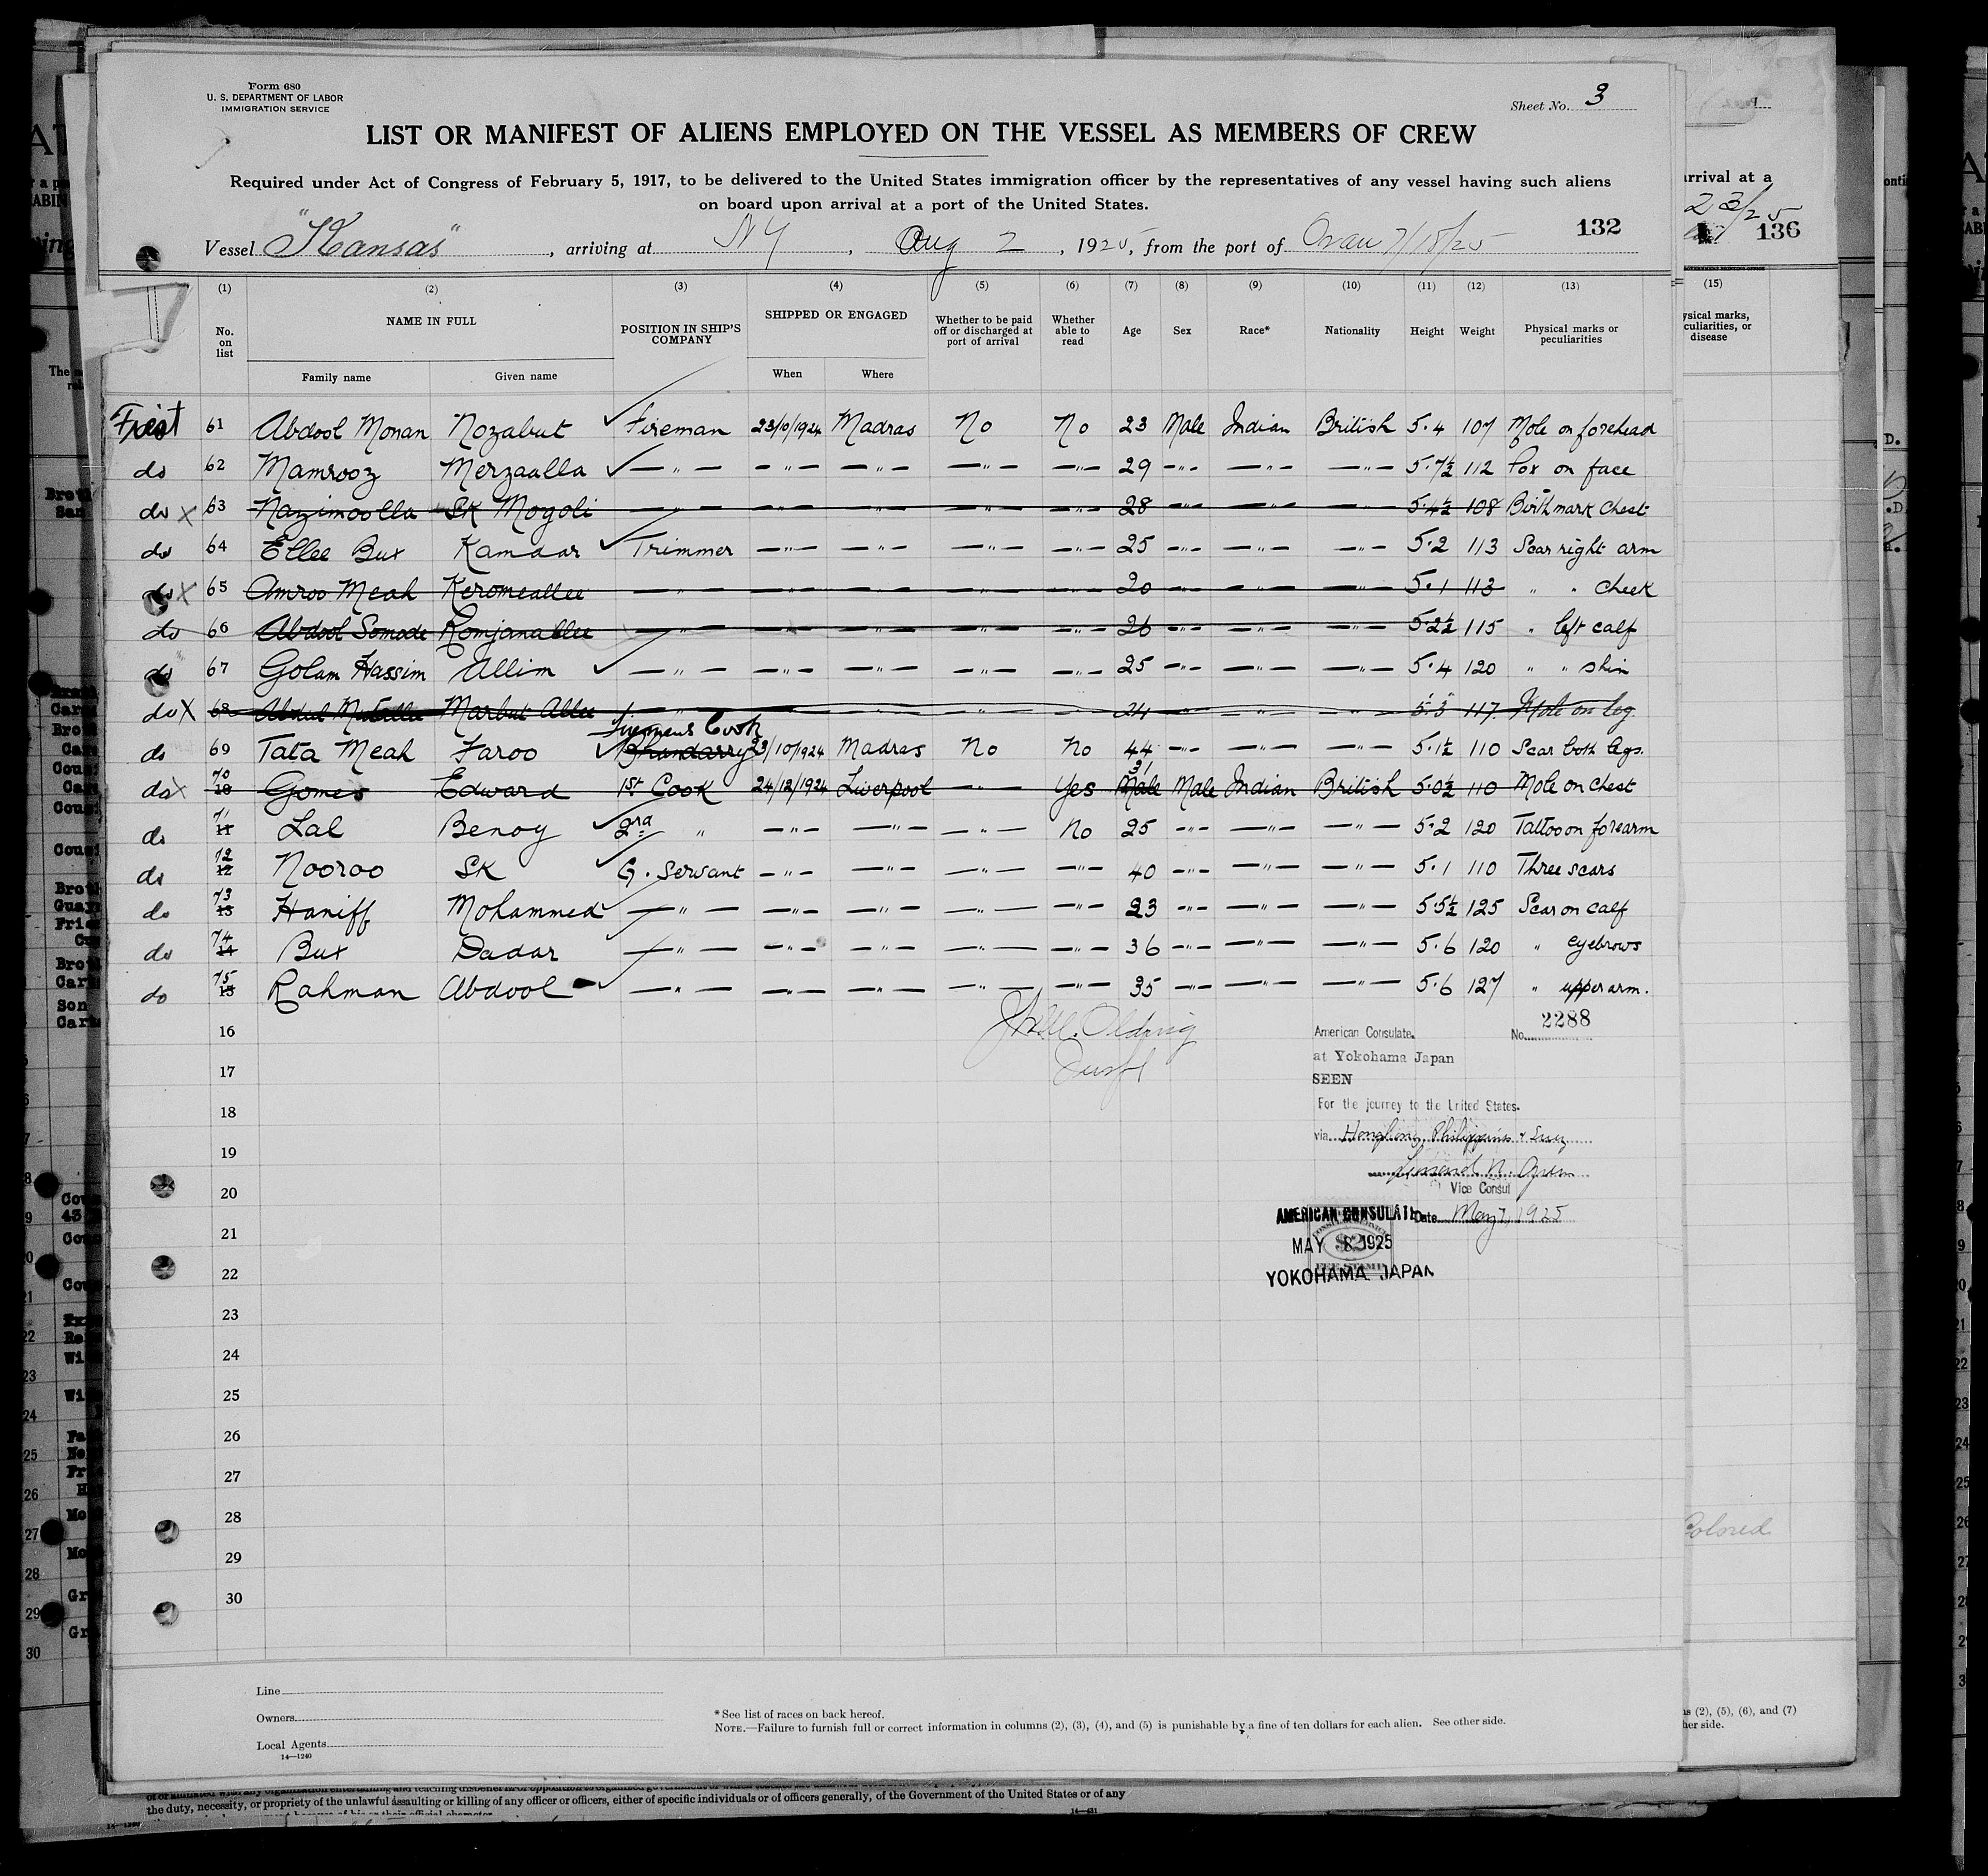 Form 680
U. S. DEPARTMENT OF LABOR
IMMIGRATION SERVICE
Sheet No. 3
LIST OR MANIFEST OF ALIENS EMPLOYED ON THE VESSEL AS MEMBERS OF CREW
Required under Act of Congress of February 5, 1917, to be delivered to the United States immigration officer by the representatives of any vessel having such aliens
on board upon arrival at a port of the United States.
132
Vessel "Kansas", arriving at NY, Aug 2, 1925, from the port of Oran 7/18/25
(1) (2) (3) (4) (5) (6) (7) (8) (9) (10) (11) (12) (13)
No. on list NAME IN FULL POSITION IN SHIP'S COMPANY SHIPPED OR ENGAGED Whether to be paid off or discharged at port of arrival Whether able to read Age Sex Race* Nationality Height Weight Physical marks or peculiarities
Family name Given name When Where
61 Abdool Monan Nozabut Fireman 23/10/1924 Madras No No 23 Male Indian British 5.4 107 Mole on forehead
do 62 Mamrooz Merzaalla — " — — " — — " — — " — — " — 29 — " — — " — — " — 5.7½ 112 Pox on face
do X 63 Nazimoolla SK Mogoli — " — — " — — " — — " — — " — 28 — " — — " — — " — 5.4½ 108 Birthmark chest
do 64 Ellee Bux Kamdar Trimmer — " — — " — — " — — " — 25 — " — — " — — " — 5.2 113 Scar right arm
do X 65 Amroo Meah Keromeallee — " — — " — — " — — " — — " — 20 — " — — " — — " — 5.1 113 " " cheek
do 66 Abdool Somode Romjanallee — " — — " — — " — — " — — " — 26 — " — — " — — " — 5.2½ 115 " left calf
do 67 Golam Hassim Allim — " — — " — — " — — " — — " — 25 — " — — " — — " — 5.4 120 " " shin
do X 68 Abdul Marbut Allee — " — — " — — " — — " — — " — 24 — " — — " — — " — 5.3 117 Mole on leg
Firemen's Cook
do 69 Tata Meah Faroo Bhandarry 23/10/1924 Madras No No 44 — " — — " — — " — 5.1½ 110 Scar both legs.
do X 70 10 Gomes Edward 1st Cook 24/12/1924 Liverpool — " — Yes 31 Male Male Indian British 5.0½ 110 Mole on chest
do 71 11 Lal Benoy 2nd " — " — — " — — " — No 25 — " — — " — — " — 5.2 120 Tattoo on forearm
do 72 12 Nooroo SK G. Servant — " — — " — — " — — " — 40 — " — — " — — " — 5.1 110 Three scars
do 73 13 Haniff Mohammed — " — — " — — " — — " — — " — 23 — " — — " — — " — 5.5½ 125 Scar on calf
do 74 14 Bux Dadar — " — — " — — " — — " — — " — 36 — " — — " — — " — 5.6 120 " eyebrows
do 75 15 Rahman Abdool — " — — " — — " — — " — — " — 35 — " — — " — — " — 5.6 127 " upper arm.
16
17
18
19
20
21
22
23
24
25
26
27
28
29
30
American Consulate. No. 2288
at Yokohama Japan
SEEN
For the journey to the United States.
via Hongkong, Philippines & Suez
Vice Consul
Date May 7, 1925
AMERICAN CONSULATE
MAY 8 1925
YOKOHAMA JAPAN
$2
Line
Owners
Local Agents
14—1240
* See list of races on back hereof.
NOTE.—Failure to furnish full or correct information in columns (2), (3), (4), and (5) is punishable by a fine of ten dollars for each alien. See other side.
arrival at a
136
(15)
Colored
(2), (5), (6), and (7)
the duty, necessity, or propriety of the unlawful assaulting or killing of any officer or officers, either of specific individuals or of officers generally, of the Government of the United States or of any